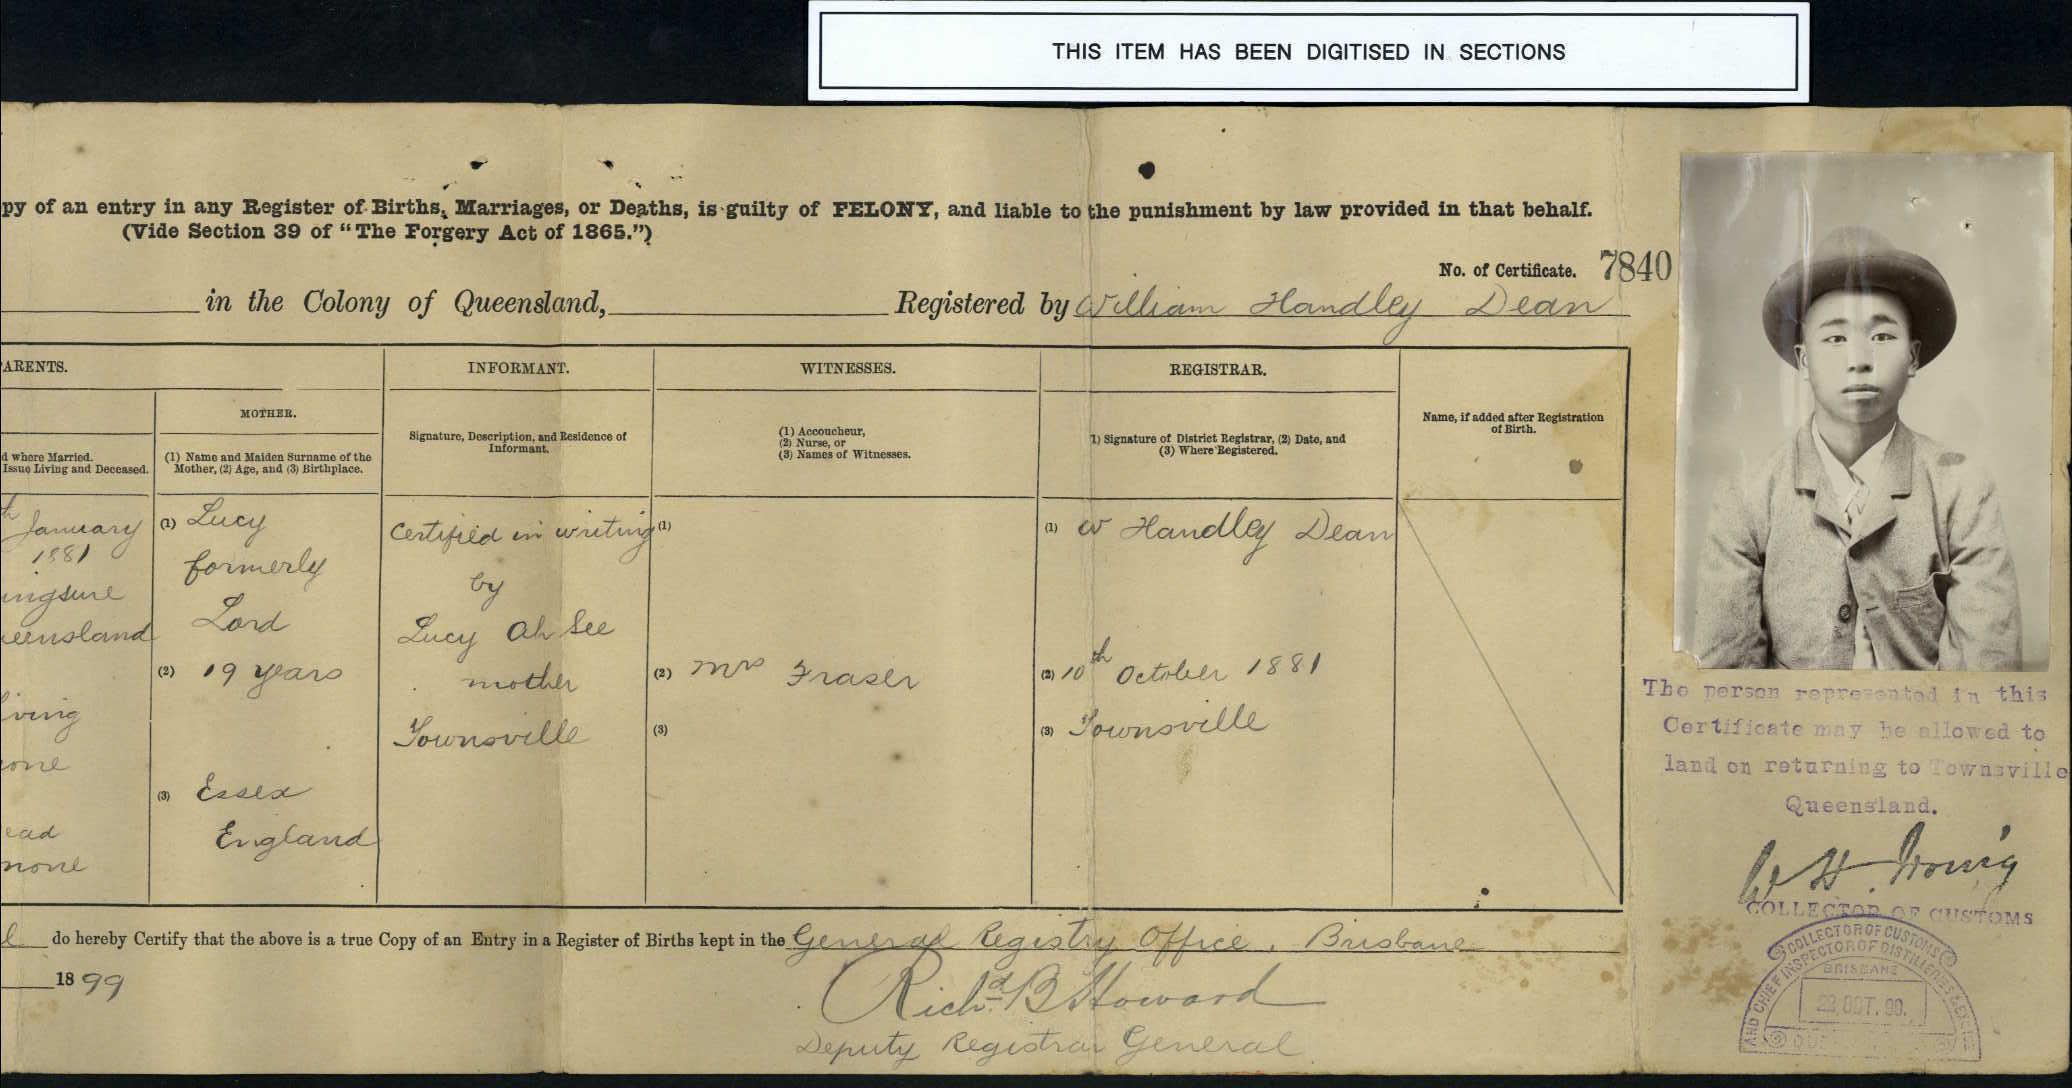 THIS ITEM HAS BEEN DIGITISED IN SECTIONS
py of an entry in any Register of Births, Marriages, or Deaths, is guilty of FELONY, and liable to the punishment by law provided in that behalf.
(Vide Section 39 of "The Forgery Act of 1865.")
No. of Certificate. 7840
in the Colony of Queensland, Registered by William Handley Dean
ARENTS.
INFORMANT.
WITNESSES.
REGISTRAR.
MOTHER.
Signature, Description, and Residence of
Informant.
(1) Accoucheur,
(2) Nurse, or
(3) Names of Witnesses.
1) Signature of District Registrar, (2) Date, and
(3) Where Registered.
Name, if added after Registration
of Birth.
d where Married.
Issue Living and Deceased.
(1) Name and Maiden Surname of the
Mother, (2) Age, and (3) Birthplace.
th January
1881
ingsure
eensland
iving
one
ead
none
(1) Lucy
formerly
Lord
(2) 19 years
(3) Essex
England
Certified in writing
by
Lucy Ah See
mother
Townsville
(1)
(2) Mrs Fraser
(3)
(1) W Handley Dean
(2) 10th October 1881
(3) Townsville
The person represented in this
Certificate may be allowed to
land on returning to Townsville
Queensland.
COLLECTOR OF CUSTOMS
l do hereby Certify that the above is a true Copy of an Entry in a Register of Births kept in the General Registry Office, Brisbane
1899
Richd B Howard
Deputy Registrar General
COLLECTOR OF CUSTOMS
AND CHIEF INSPECTOR OF DISTILLERIES & EXCISE
BRISBANE
23 OCT. 99.